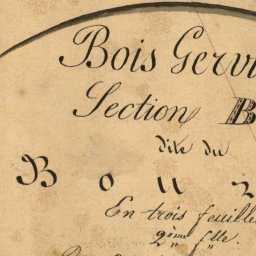 Bois Gervi
Section B
dite du
B o u
En trois feuille
2ème flle.